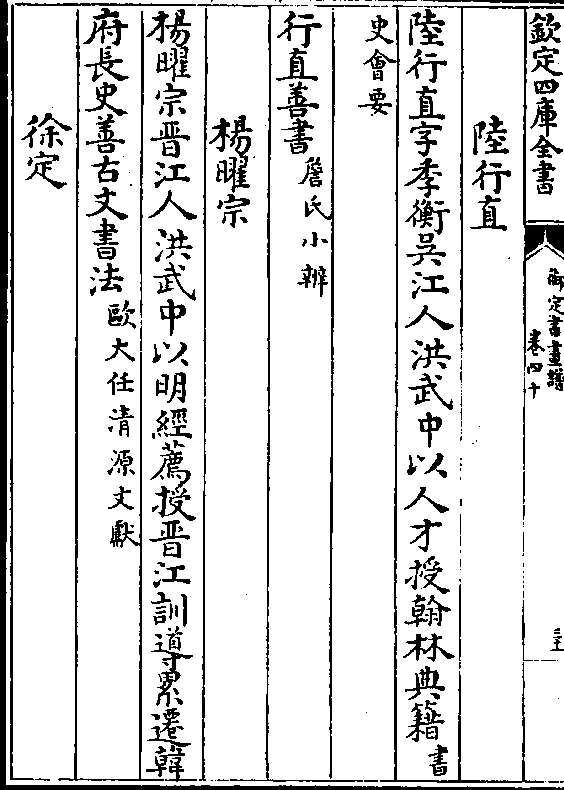 欽定四庫全書
御定書畫譜
卷四十
陸行直
陸行直字季衡吳江人洪武中以人才授翰林典籍書
史會要
行直善書詹氏小辨
楊曜宗
楊曜宗晉江人洪武中以明經薦授晉江訓導累遷韓
府長史善古文書法歐大任清源文獻
徐定